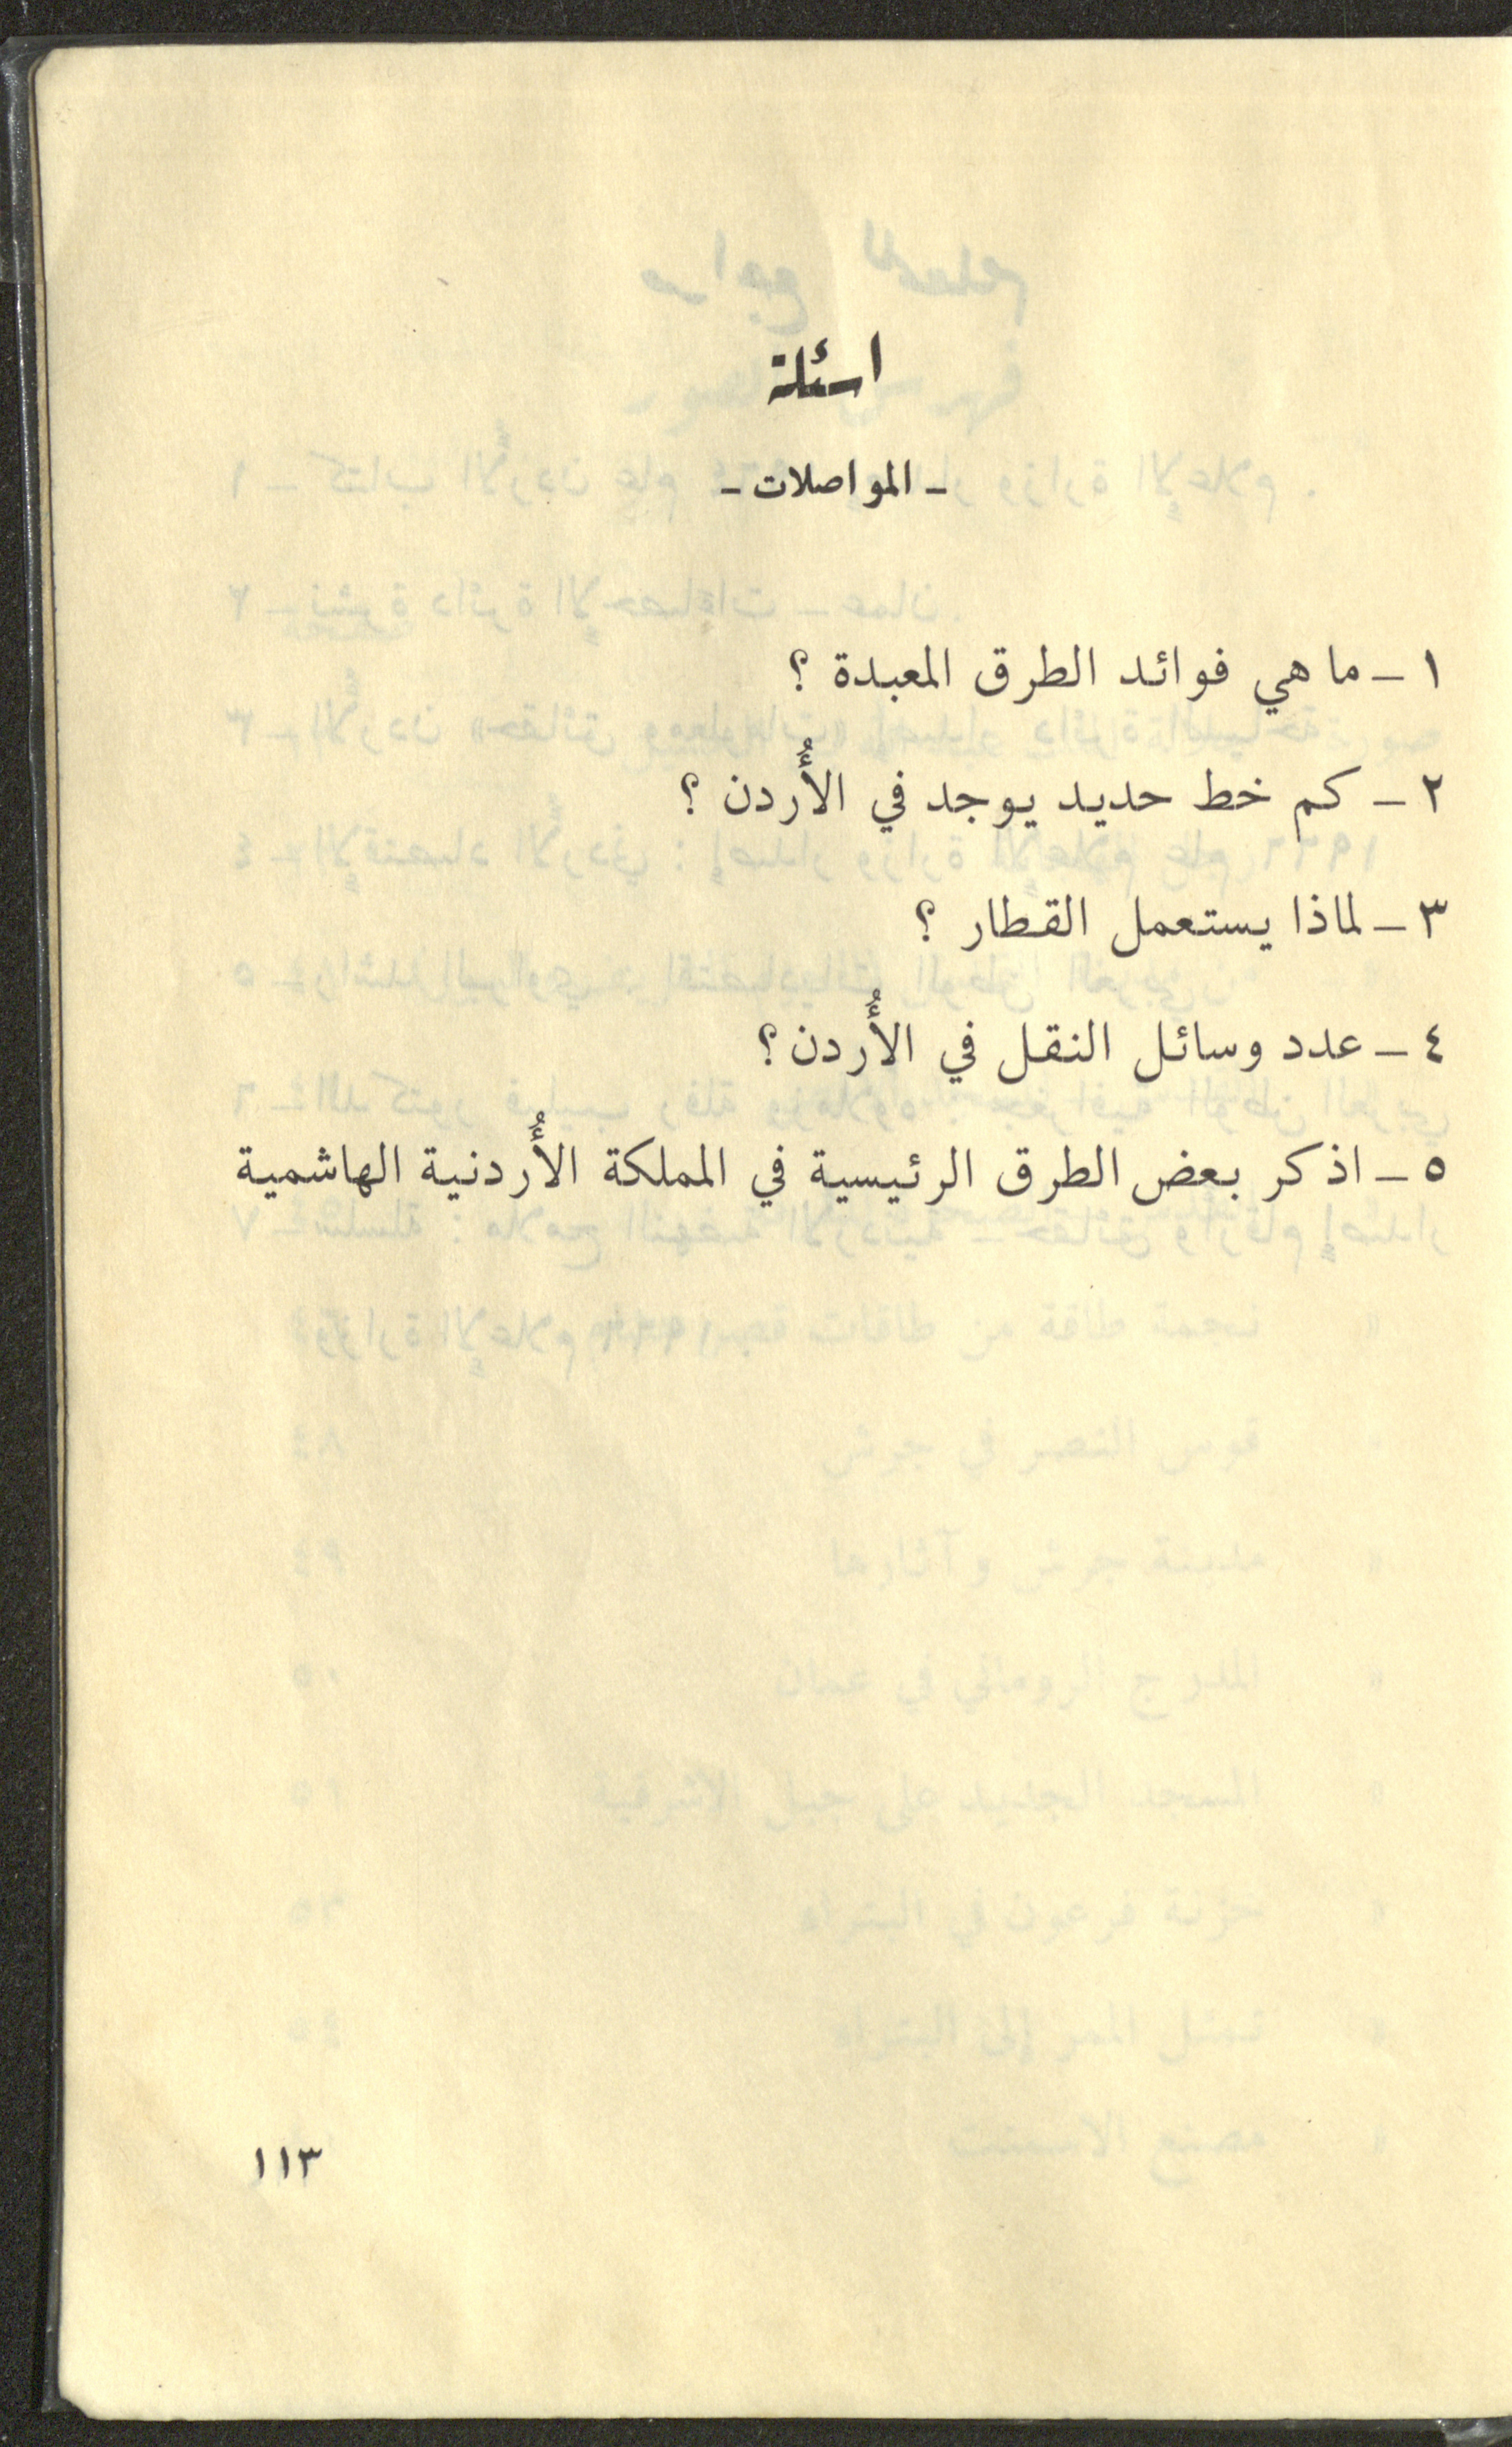 اسئلة
- المواصلات -
١ - ما هي فوائد الطرق المعبدة ؟
٢ - كم خط حديد يوجد في الأُردن ؟
٣ - لماذا يستعمل القطار ؟
٤ - عدد وسائل النقل في الأُردن ؟
٥ - اذكر بعض الطرق الرئيسية في المملكة الأُردنية الهاشمية
١١٣